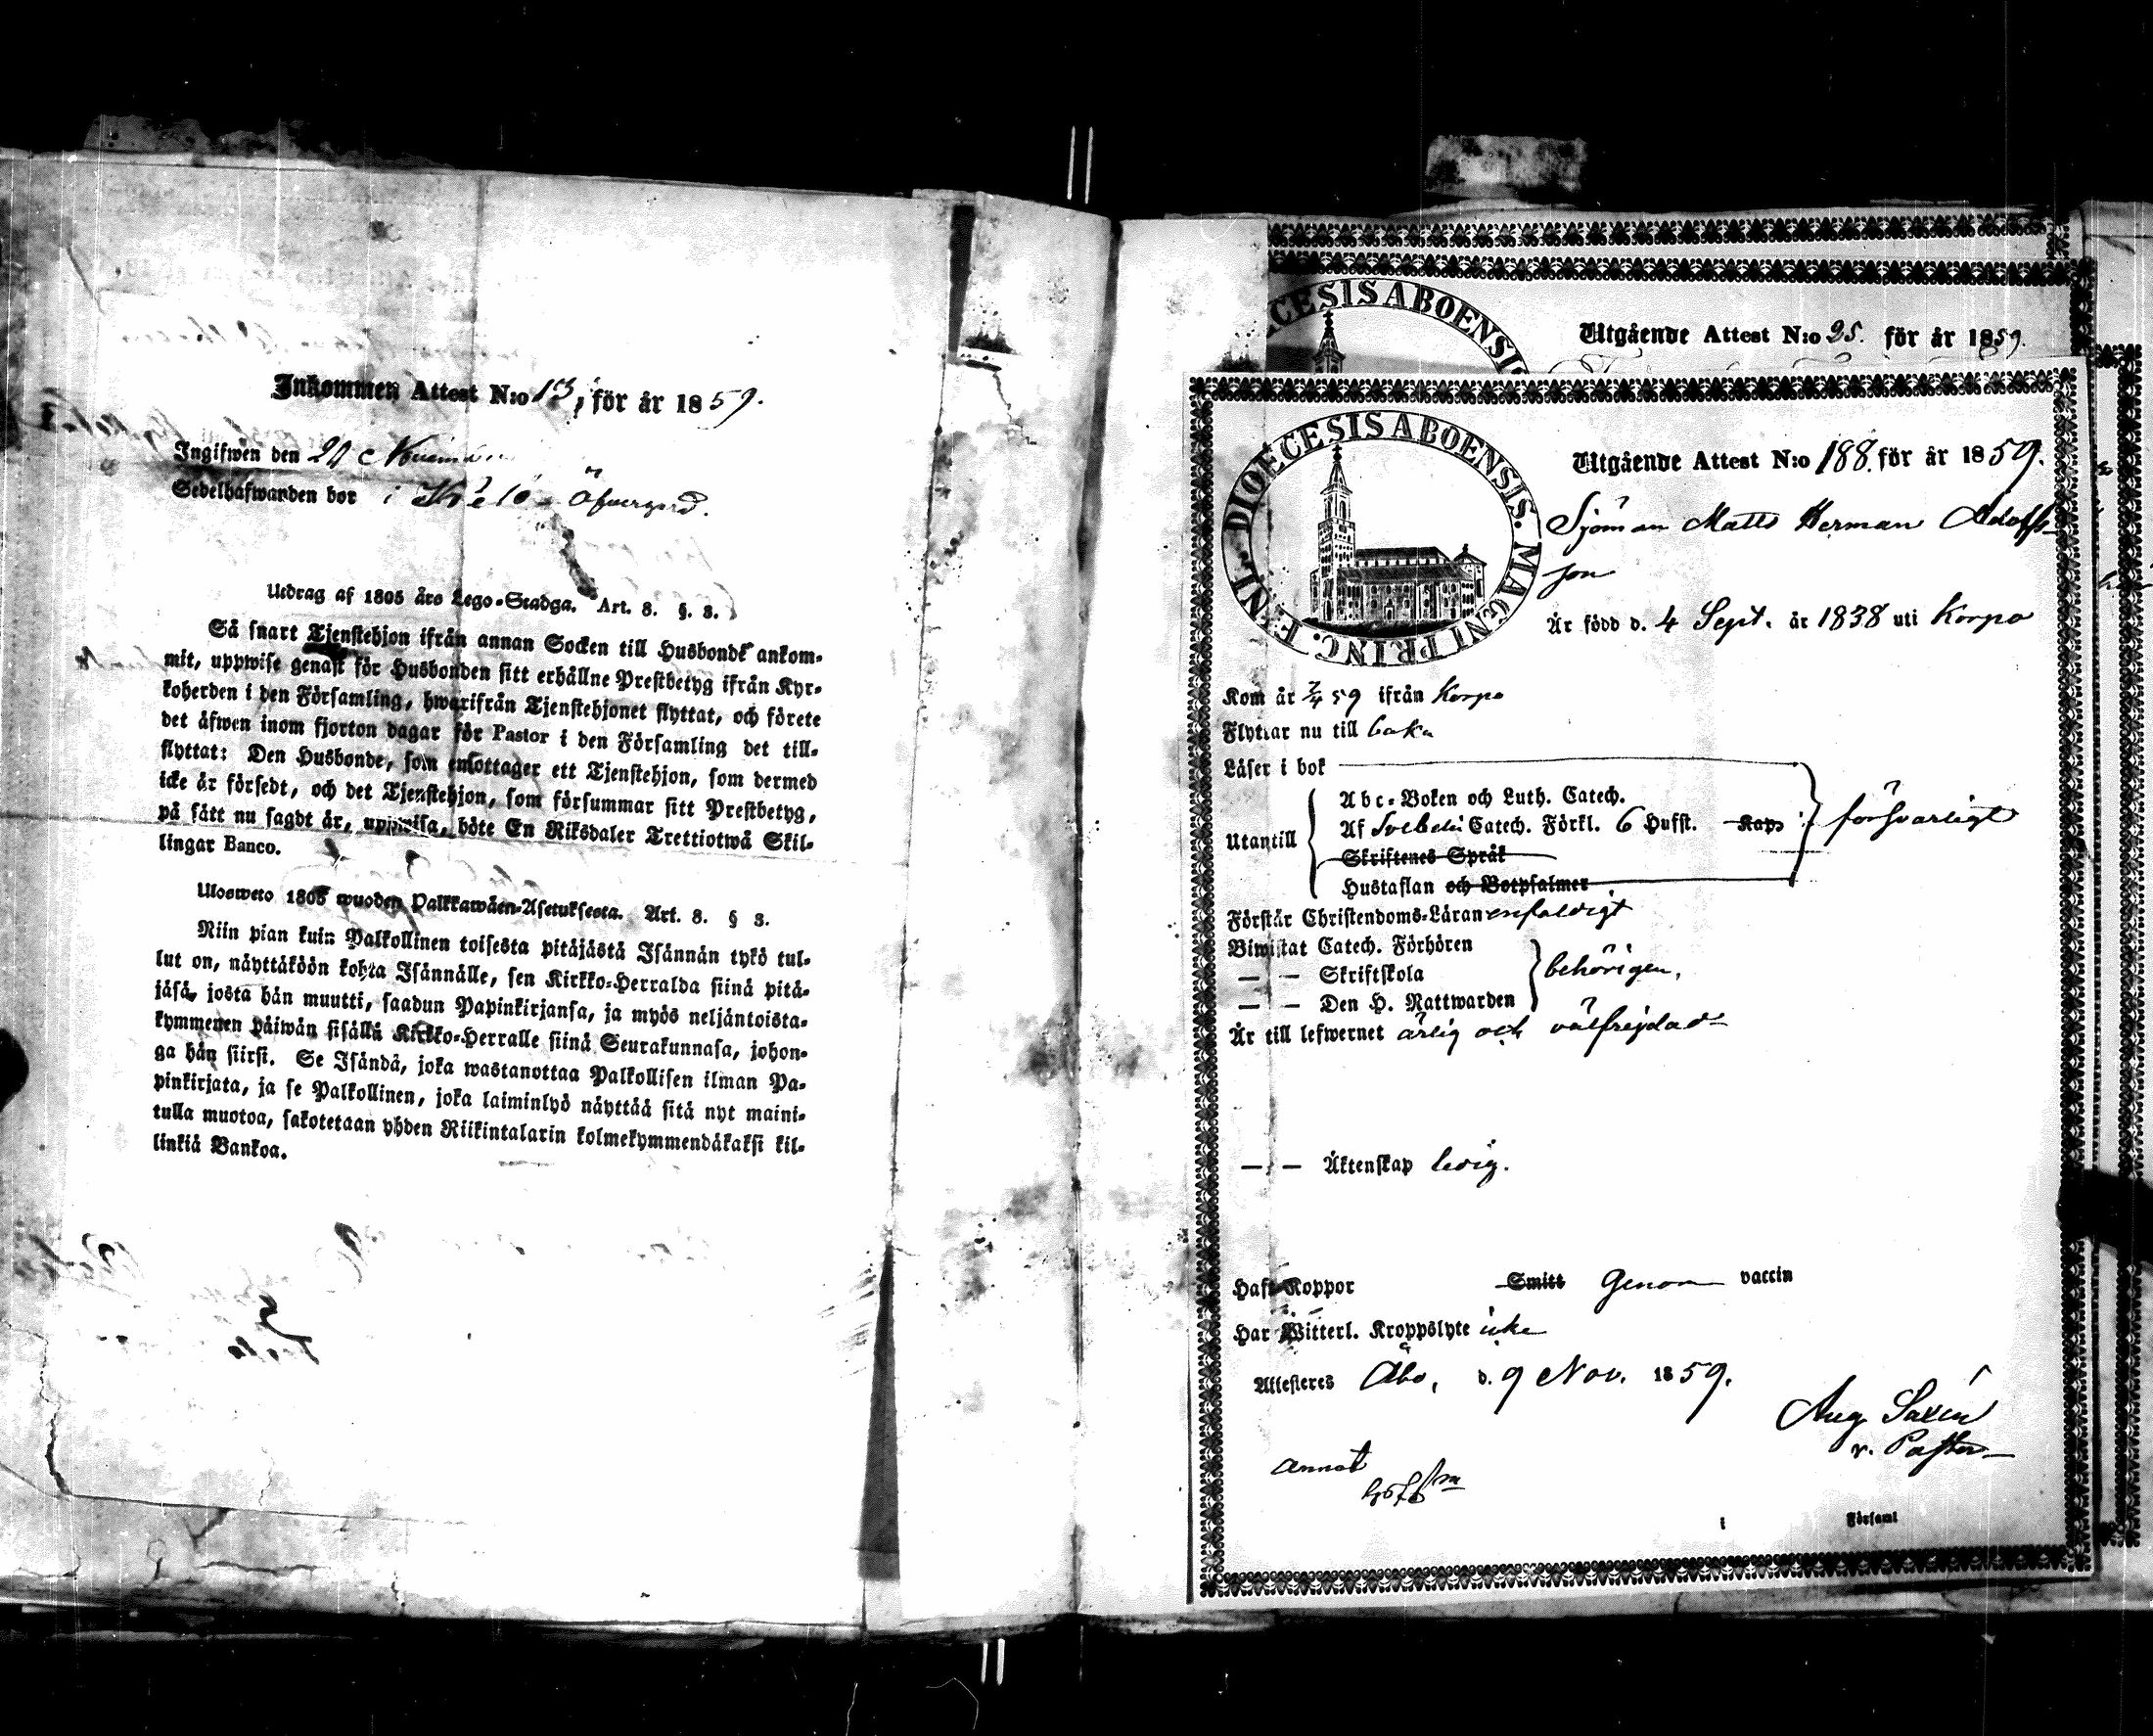 Inkommen Attest N:o 13, för år 1859.
Ingifwen den 20 November
Sedelhafwanden bor i Öfvergård.
Utdrag af 1805 års Lego-Stadga. Art. 8. §. 3.
Så snart Tjenstehjon ifrån annan Socken till Husbonde ankom-
mit, uppwise genast för Husbonden sitt erhållne Prestbetyg ifrån Kyr-
koherden i den Församling, hwarifrån Tjenstehjonet flyttat, och förete
det äfwen inom fjorton dagar för Pastor i den Församling det till-
flyttat: Den Husbonde, som emottager ett Tjenstehjon, som dermed
icke är försedt, och det Tjenstehjon, som försummar sitt Prestbetyg,
på sätt nu sagdt är, uppwisa, böte En Riksdaler Trettiotwå Skil-
lingar Banco.
Ulosweto 1805 wuoden Palkkawäen-Asetuksesta. Art. 8. § 3.
Niin pian kuin Palkollinen toisesta pitäjästä Isännän tykö tul-
lut on, näyttäköön kohta Isännälle, sen Kirkko-Herralda siinä pitä-
jäsä, josta hän muutti, saadun Papinkirjansa, ja myös neljäntoista-
kymmenen päiwän sisällä Kirkko-Herralle siinä Seurakunnasa, johon-
ga hän siirsi. Se Isändä, joka wastanottaa Palkollisen ilman Pa-
pinkirjata, ja se Palkollinen, joka laiminlyö näyttää sitä nyt maini-
tulla muotoa, sakotetaan yhden Riikintalarin kolmekymmendäkaksi kil-
linkiä Bankoa.
CESIS ABOENSIS
Utgående Attest N:o 25. för år 1859.
DIOECESIS ABOENSIS. MAGNI PRINC. FENL.
Utgående Attest N:o 188. för år 1859.
Sjöman Matts Herman Adolfs-
son
Är född d. 4 Sept. år 1838 uti Korpo
Kom år 7/4 59 ifrån Korpo
Flyttar nu till baka
Läser i bok
Abc-Boken och Luth. Catech.
Utantill Af Svebelii Catech. Förkl. 6 Hufst. Kap: försvarligt
Skriftenes Språk
Hustaflan och Botpsalmer
Förstår Christendoms-Läran enfaldigt
Biwistat Catech. Förhören
— — Skriftskola behörigen,
— — Den H. Nattwarden
Är till lefwernet ärlig och välfrejdad
— — Äktenskap ledig.
Haft Koppor Smitt Genom vaccin
Har Witterl. Kroppslyte icke
Attesteres Åbo, d. 9 Nov. 1859.
Aug Saxén
v. Pastor
annot
i Församl